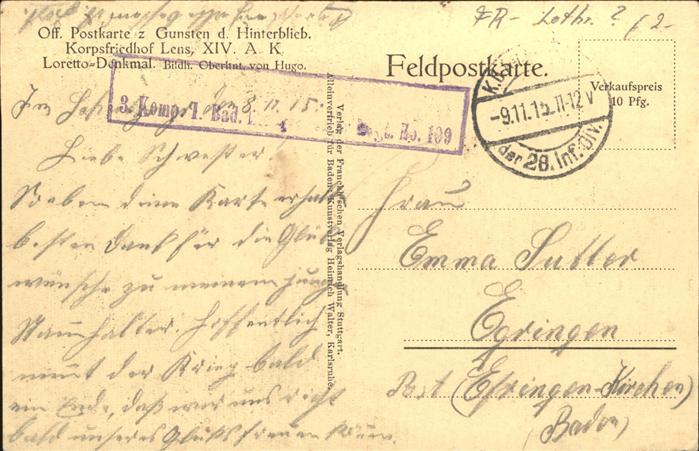 FR- Lothr. ? 62-
Off. Postkarte z Gunsten d. Hinterblieb.
Korpsfriedhof Lens, XIV. A. K.
Loretto-Denkmal. Bildh. Oberltnt. von Hugo.
Feldpostkarte.
Verkaufspreis
10 Pfg.
3. Komp. 1. Bad. Regt. No. 109
K.D.
-9.11.15.11-12V
der 28.Inf.Div.
Verlag der Franckh'schen Verlagshandlung Stuttgart.
Alleinvertrieb für Baden: Kunstverlag Heinrich Walter, Karlsruhe.
den 8. 11. 15.
Liebe Schwester!
Soeben deine Karte erhalten
besten Dank für die Glück-
wünsche zu meinem jungen
Stammhalter. Hoffentlich
nimmt der Krieg bald
ein Ende, daß wir uns recht
bald unseres Glücks freuen können.
Frau
Emma Sutter
Egringen
Post (Efringen-Kirchen)
(Baden)